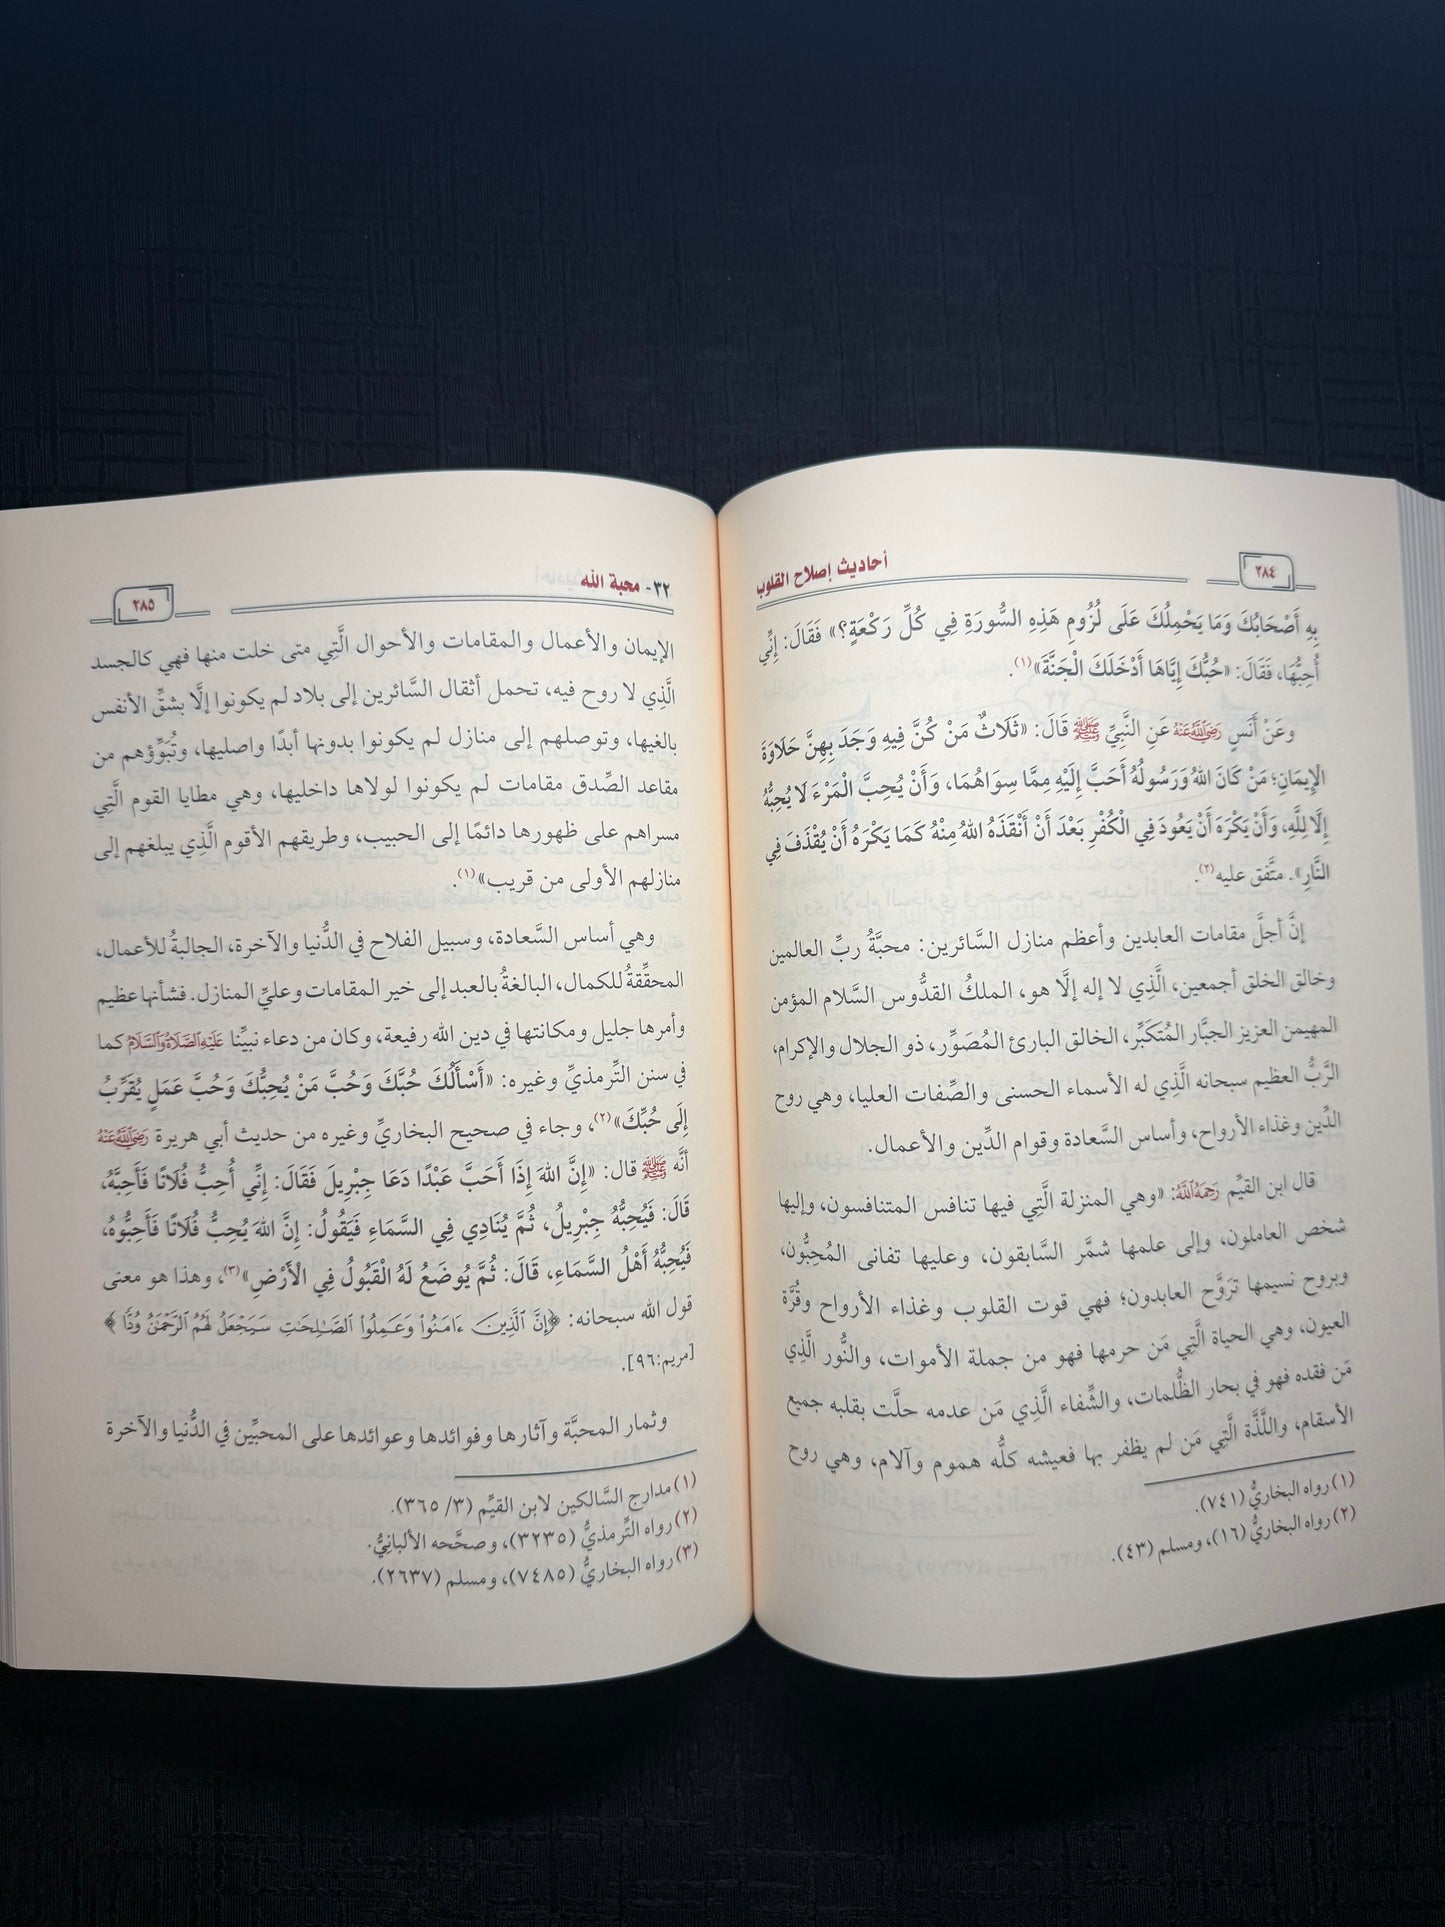 ٢٨٤
أحاديث إصلاح القلوب
بِهِ أَصْحَابُكَ وَمَا يَحْمِلُكَ عَلَى لُزُومِ هَذِهِ السُّورَةِ فِي كُلِّ رَكْعَةٍ؟» فَقَالَ: إِنِّي
أُحِبُّهَا، فَقَالَ: «حُبُّكَ إِيَّاهَا أَدْخَلَكَ الْجَنَّةَ»(١).
وعَنْ أَنَسٍ رَضِيَ اللَّهُ عَنْهُ عَنِ النَّبِيِّ ﷺ قَالَ: «ثَلَاثٌ مَنْ كُنَّ فِيهِ وَجَدَ بِهِنَّ حَلَاوَةَ
الْإِيمَانِ؛ مَنْ كَانَ اللهُ وَرَسُولُهُ أَحَبَّ إِلَيْهِ مِمَّا سِوَاهُمَا، وَأَنْ يُحِبَّ الْمَرْءَ لَا يُحِبُّهُ
إِلَّا لِلَّهِ، وَأَنْ يَكْرَهَ أَنْ يَعُودَ فِي الْكُفْرِ بَعْدَ أَنْ أَنْقَذَهُ اللهُ مِنْهُ كَمَا يَكْرَهُ أَنْ يُقْذَفَ فِي
النَّارِ». متَّفق عليه(٢).
إنَّ أجلَّ مقامات العابدين وأعظم منازل السَّائرين: محبَّةُ ربِّ العالمين
وخالق الخلق أجمعين، الَّذِي لا إله إلَّا هو، الملكُ القدُّوس السَّلام المؤمن
المهيمن العزيز الجبَّار المُتَكَبِّر، الخالق البارئ المُصَوِّر، ذو الجلال والإكرام،
الرَّبُّ العظيم سبحانه الَّذِي له الأسماء الحسنى والصِّفات العليا، وهي روح
الدِّين وغذاء الأرواح، وأساس السَّعادة وقوام الدِّين والأعمال.
قال ابن القيِّم رَحِمَهُ اللَّهُ: «وهي المنزلة الَّتِي فيها تنافس المتنافسون، وإليها
شخص العاملون، وإلى علمها شمَّر السَّابقون، وعليها تفانى المُحِبُّون،
وبروح نسيمها تَروَّح العابدون؛ فهي قوت القلوب وغذاء الأرواح وقُرَّة
العيون، وهي الحياة الَّتِي مَن حرمها فهو من جملة الأموات، والنُّور الَّذِي
مَن فقده فهو في بحار الظُّلمات، والشِّفاء الَّذِي مَن عدمه حلَّت بقلبه جميع
الأسقام، واللَّذَّة الَّتِي مَن لم يظفر بها فعيشه كلُّه هموم وآلام، وهي روح
(١) رواه البخاريُّ (٧٤١).
(٢) رواه البخاريُّ (١٦)، ومسلم (٤٣).
٣٢- محبة الله
٢٨٥
الإيمان والأعمال والمقامات والأحوال الَّتِي متى خلت منها فهي كالجسد
الَّذِي لا روح فيه، تحمل أثقال السَّائرين إلى بلاد لم يكونوا إلَّا بشقِّ الأنفس
بالغيها، وتوصلهم إلى منازل لم يكونوا بدونها أبدًا واصليها، وتُبَوِّؤهم من
مقاعد الصِّدق مقامات لم يكونوا لولاها داخليها، وهي مطايا القوم الَّتِي
مسراهم على ظهورها دائمًا إلى الحبيب، وطريقهم الأقوم الَّذِي يبلغهم إلى
منازلهم الأولى من قريب»(١).
وهي أساس السَّعادة، وسبيل الفلاح في الدُّنيا والآخرة، الجالبةُ للأعمال،
المحقِّقةُ للكمال، البالغةُ بالعبد إلى خير المقامات وعليِّ المنازل. فشأنها عظيم
وأمرها جليل ومكانتها في دين الله رفيعة، وكان من دعاء نبيِّنا عَلَيْهِ الصَّلَاةُ وَالسَّلَامُ كما
في سنن التِّرمذيِّ وغيره: «أَسْأَلُكَ حُبَّكَ وَحُبَّ مَنْ يُحِبُّكَ وَحُبَّ عَمَلٍ يُقَرِّبُ
إِلَى حُبِّكَ»(٢)، وجاء في صحيح البخاريِّ وغيره من حديث أبي هريرة رَضِيَ اللَّهُ عَنْهُ
أنَّه ﷺ قال: «إِنَّ اللهَ إِذَا أَحَبَّ عَبْدًا دَعَا جِبْرِيلَ فَقَالَ: إِنِّي أُحِبُّ فُلَانًا فَأَحِبَّهُ،
قَالَ: فَيُحِبُّهُ جِبْرِيلُ، ثُمَّ يُنَادِي فِي السَّمَاءِ فَيَقُولُ: إِنَّ اللهَ يُحِبُّ فُلَانًا فَأَحِبُّوهُ،
فَيُحِبُّهُ أَهْلُ السَّمَاءِ، قَالَ: ثُمَّ يُوضَعُ لَهُ الْقَبُولُ فِي الْأَرْضِ»(٣)، وهذا هو معنى
قول الله سبحانه: ﴿إِنَّ ٱلَّذِينَ ءَامَنُوا۟ وَعَمِلُوا۟ ٱلصَّـٰلِحَـٰتِ سَيَجْعَلُ لَهُمُ ٱلرَّحْمَـٰنُ وُدًّا﴾
[مريم:٩٦].
وثمار المحبَّة وآثارها وفوائدها وعوائدها على المحبِّين في الدُّنيا والآخرة
(١) مدارج السَّالكين لابن القيِّم (٣/ ٣٦٥).
(٢) رواه التِّرمذيُّ (٣٢٣٥)، وصحَّحه الألبانيُّ.
(٣) رواه البخاريُّ (٧٤٨٥)، ومسلم (٢٦٣٧).